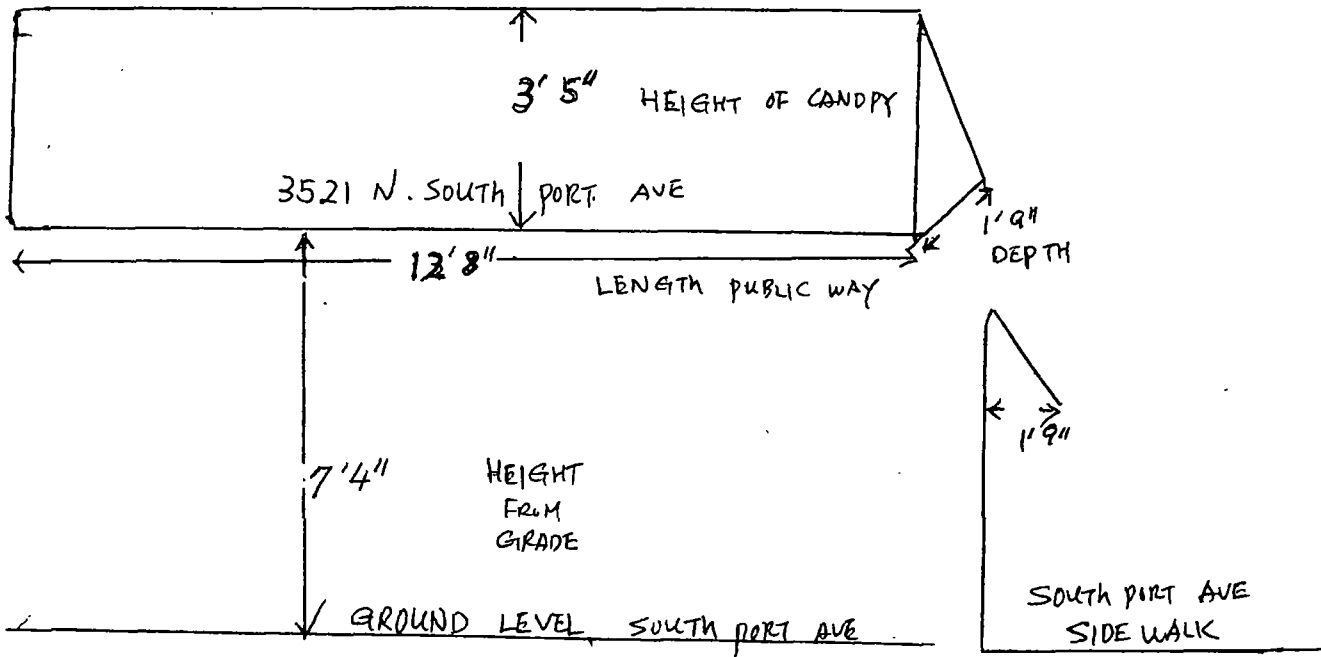 3' 5" HEIGHT OF CANOPY
3521 N. SOUTH PORT. AVE
1'9"
DEPTH
8"
LENGTH PUBLIC WAY
1'9"
7'4"
HEIGHT
FROM
GRADE
GROUND LEVEL, SOUTH PORT AVE
SOUTH PORT AVE
SIDE WALK